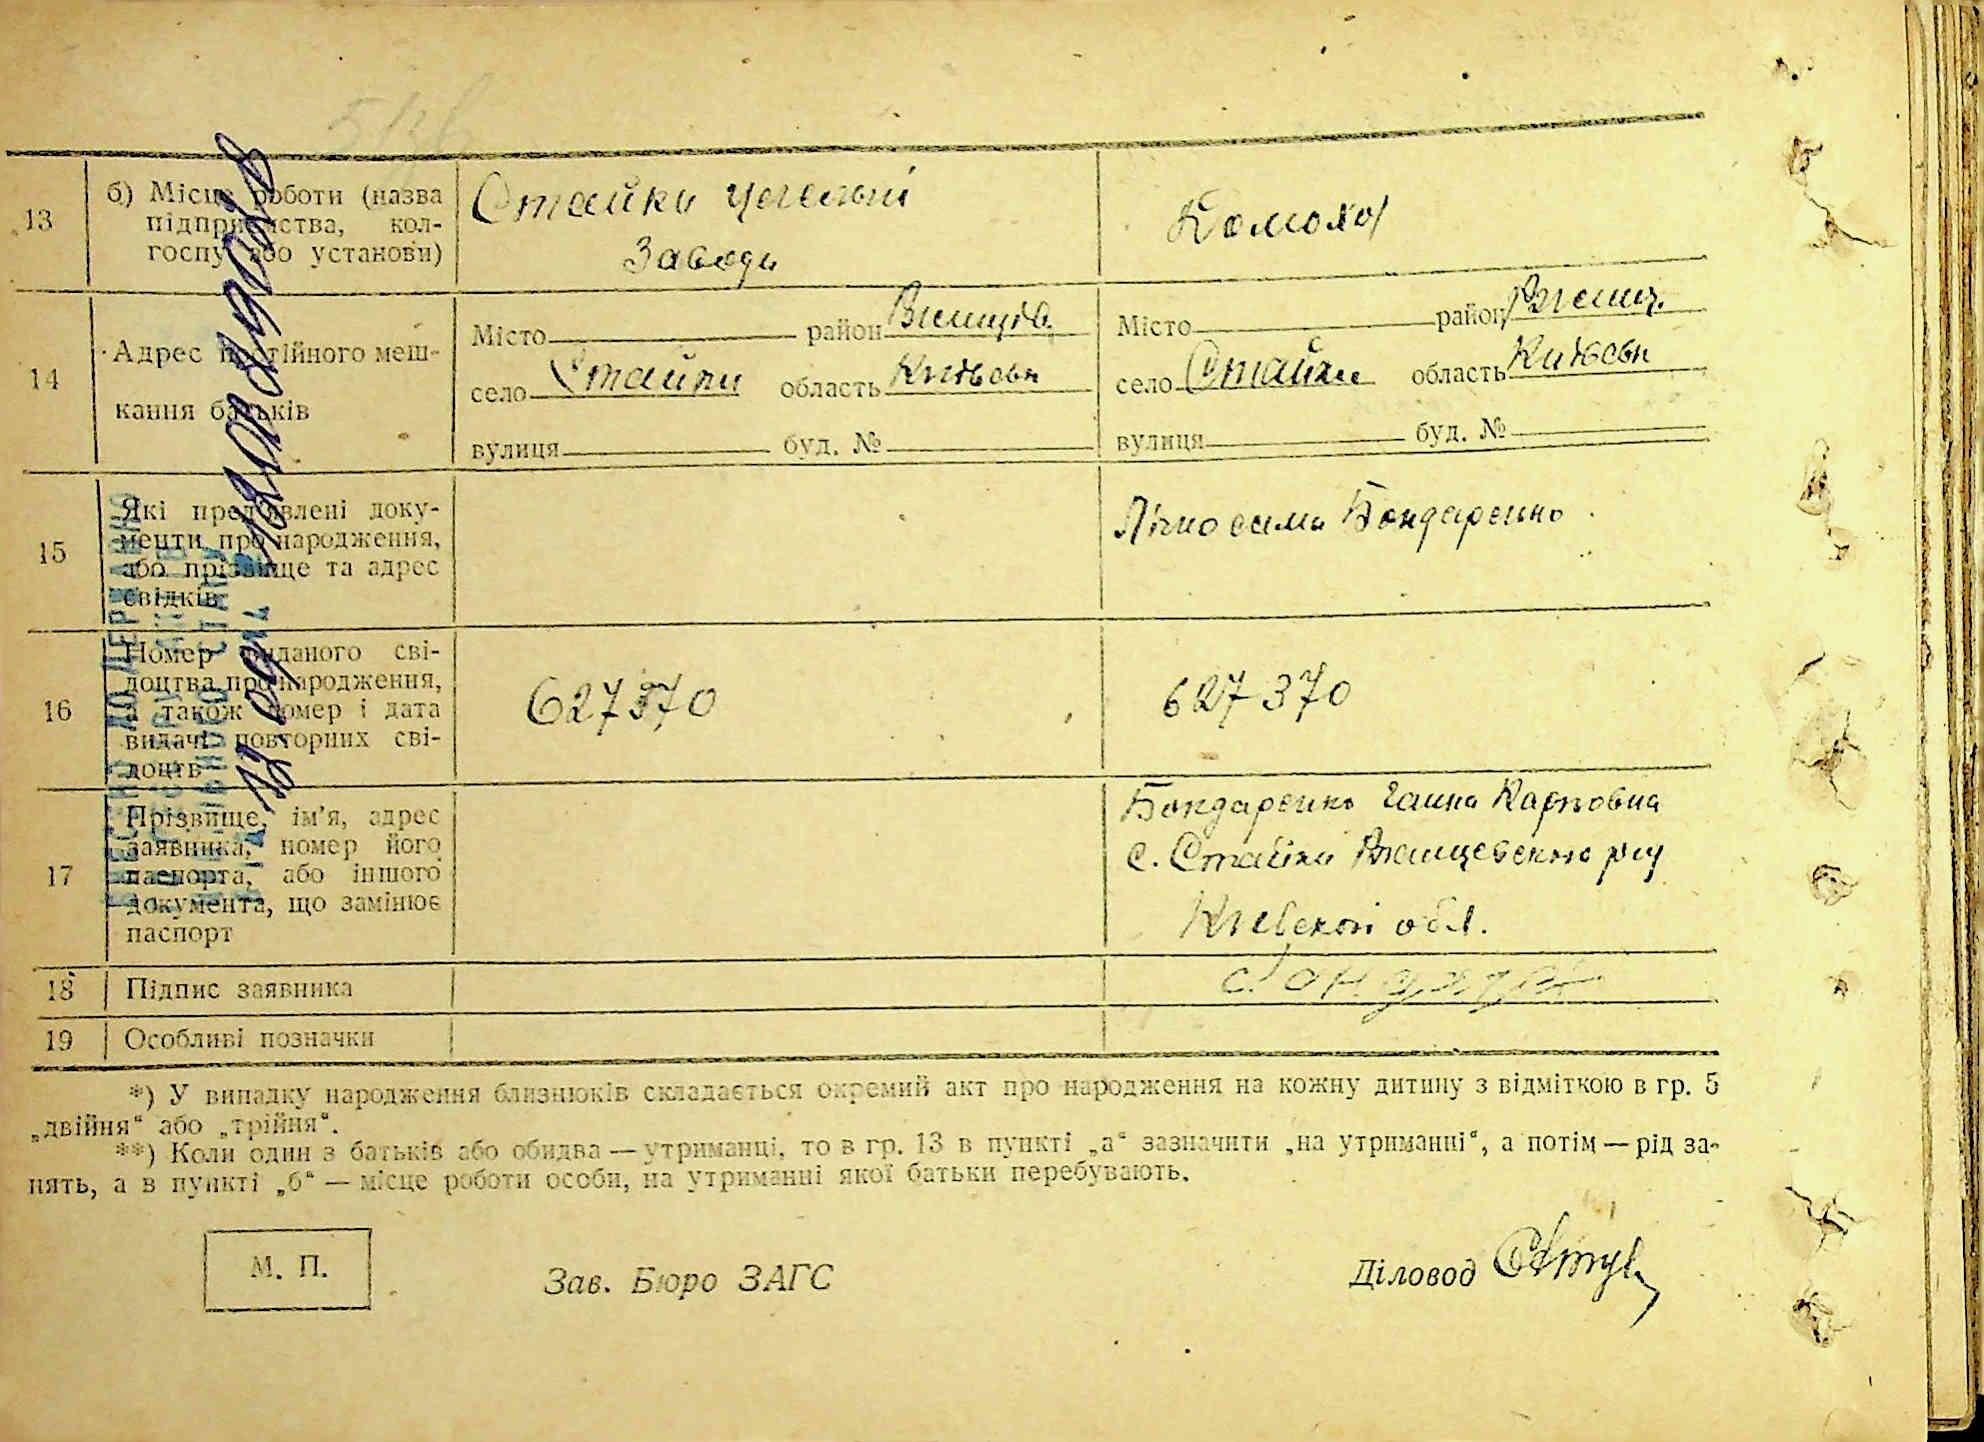 13
б) Місце роботи (назва
підприємства, кол-
госпу або установи)
Стайки цегельні
Заводи
Домохоз
14
Адрес постійного меш-
кання батьків
Місто район
село Стайки область Київськ
вулиця буд. №
Місто район Ржищ.
село Стайки область Київськ
вулиця буд. №
15
Які пред'явлені доку-
менти про народження,
або прізвище та адрес
свідків
Бондаренко
16
Номер виданого сві-
доцтва про народження,
а також номер і дата
видачі повторних сві-
доцтв
627370
627370
17
Прізвище, ім'я, адрес
заявника, номер його
паспорта, або іншого
документа, що замінює
паспорт
Бондаренко Ганна Карповна
с. Стайки
обл.
18
Підпис заявника
19
Особливі позначки
*) У випадку народження близнюків складається окремий акт про народження на кожну дитину з відміткою в гр. 5
„двійня“ або „трійня“.
**) Коли один з батьків або обидва — утриманці, то в гр. 13 в пункті „а“ зазначити „на утриманні“, а потім — рід за-
нять, а в пункті „б“ — місце роботи особи, на утриманні якої батьки перебувають.
М. П.
Зав. Бюро ЗАГС
Діловод